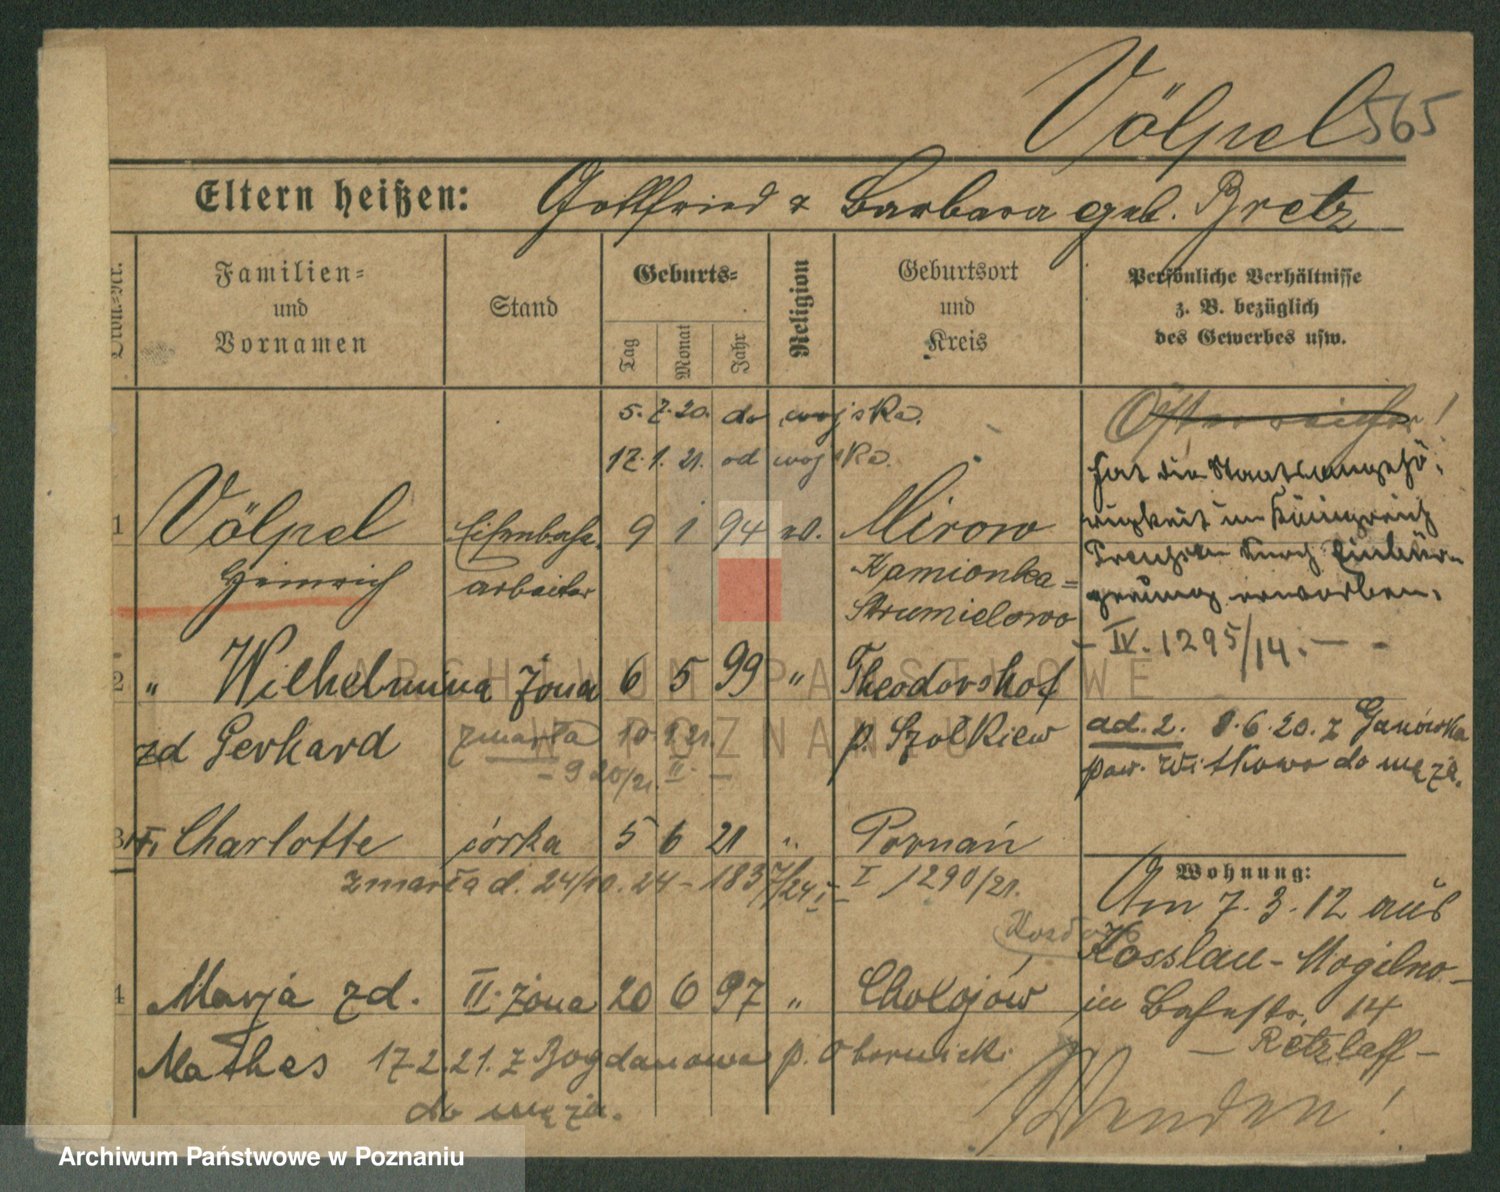 Völpel 565
Eltern heißen: Gottfried & Barbara geb. Bretz
Ordn.-Nr.
Familien-
und
Vornamen
Stand
Geburts-
Tag
Monat
Jahr
Religion
Geburtsort
und
Kreis
Persönliche Verhältnisse
z. B. bezüglich
des Gewerbes usw.
5.7.20. do wojska.
17.1.21. od wojska.
Österreicher!
hat die Staatsangehö-
rigkeit im Königreich
Preußen durch Einbür-
gerung erworben.
- IV. 1295/14. -
1 Völpel Eisenbahn- 9 1 94 ev. Mirow
Heinrich arbeiter Kamionka-
Strumielowo
2 " Wilhelmina żona 6 5 99 " Theodorshof
zd Gerhard zmarła 10.1.21. p. Szolkiew
- 9 20/21. II -
ad. 2. 8.6.20. z Ganówka
pow. Witkowo do męża.
3 Charlotte córka 5 6 21 " Poznań
zmarła d. 24/10.24 - 1837/24 I - I 1290/21.
4 Marja zd. II. żona 20 6 97 " Chołojów
Mathes 17.2.21. z Bogdanowa p. Obornicki
do męża.
Wohnung:
Am 7.3.12 aus
Kosslau - Mogilno -
in Bahnstr. 14
- Retzlaff -
Wenden!
ARCHIWUM PAŃSTWOWE
W POZNANIU
Archiwum Państwowe w Poznaniu